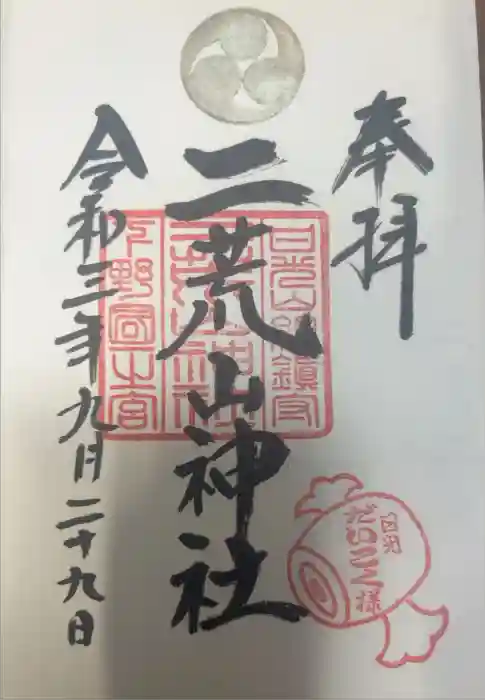 奉拝
日光山総鎮守
二荒山神社
下野国一之宮
令和三年九月二十九日
日光
だいこく様